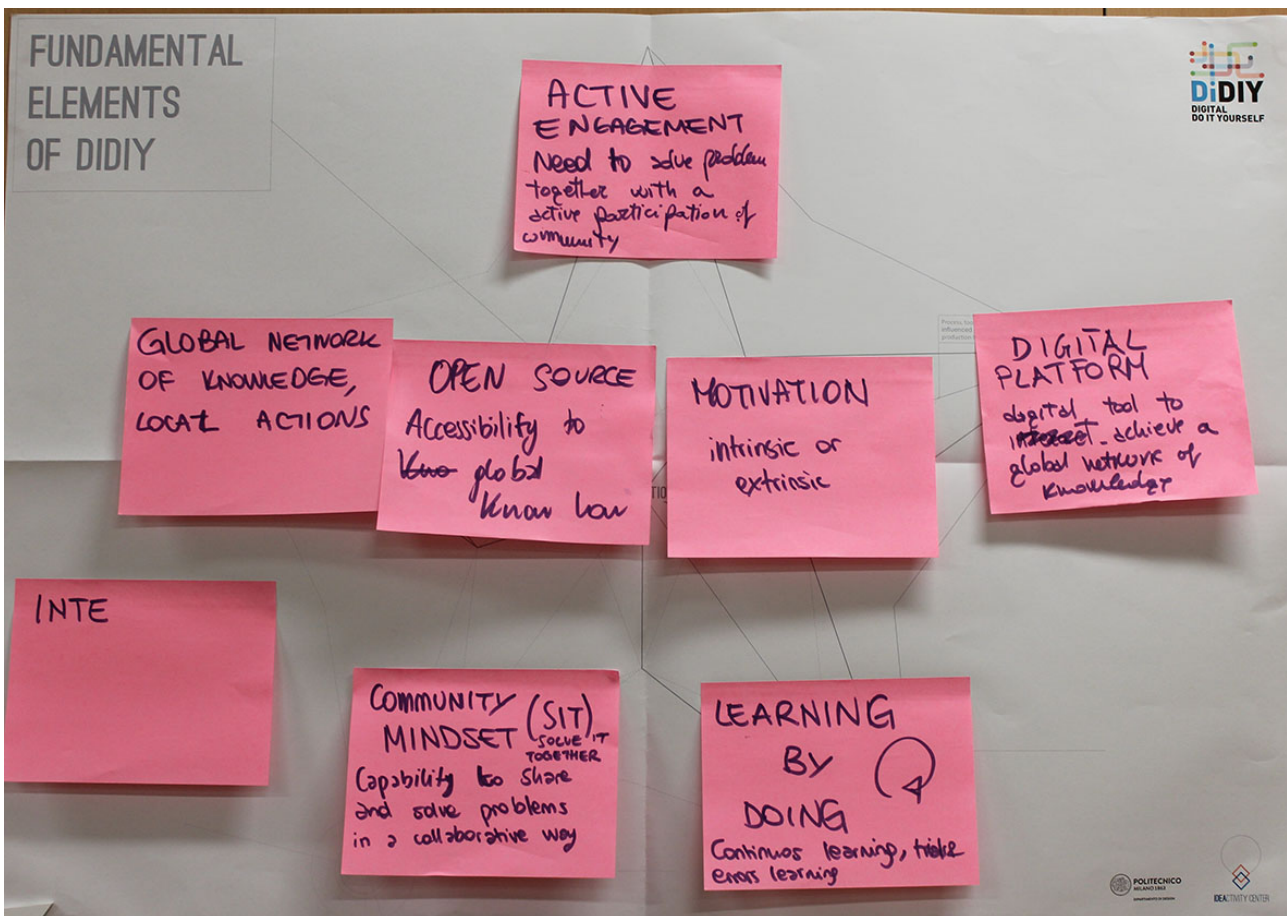 FUNDAMENTAL
ELEMENTS
OF DIDIY
DiDIY
DIGITAL
DO IT YOURSELF
ACTIVE
ENGAGEMENT
Need to solve problem
together with a
active participation of
community
GLOBAL NETWORK
OF KNOWLEDGE,
LOCAL ACTIONS
OPEN SOURCE
Accessibility to
Kno global
Know how
MOTIVATION
intrinsic or
extrinsic
influenced
production
DIGITAL
PLATFORM
digital tool to
achieve a
global network of
knowledge
INTE
COMMUNITY (SIT)
MINDSET SOLVE IT
TOGETHER
Capability to share
and solve problems
in a collaborative way
LEARNING
BY
DOING
Continuos learning, trial &
errors learning
POLITECNICO
MILANO 1863
DIPARTIMENTO DI DESIGN
IDEACTIVITY CENTER